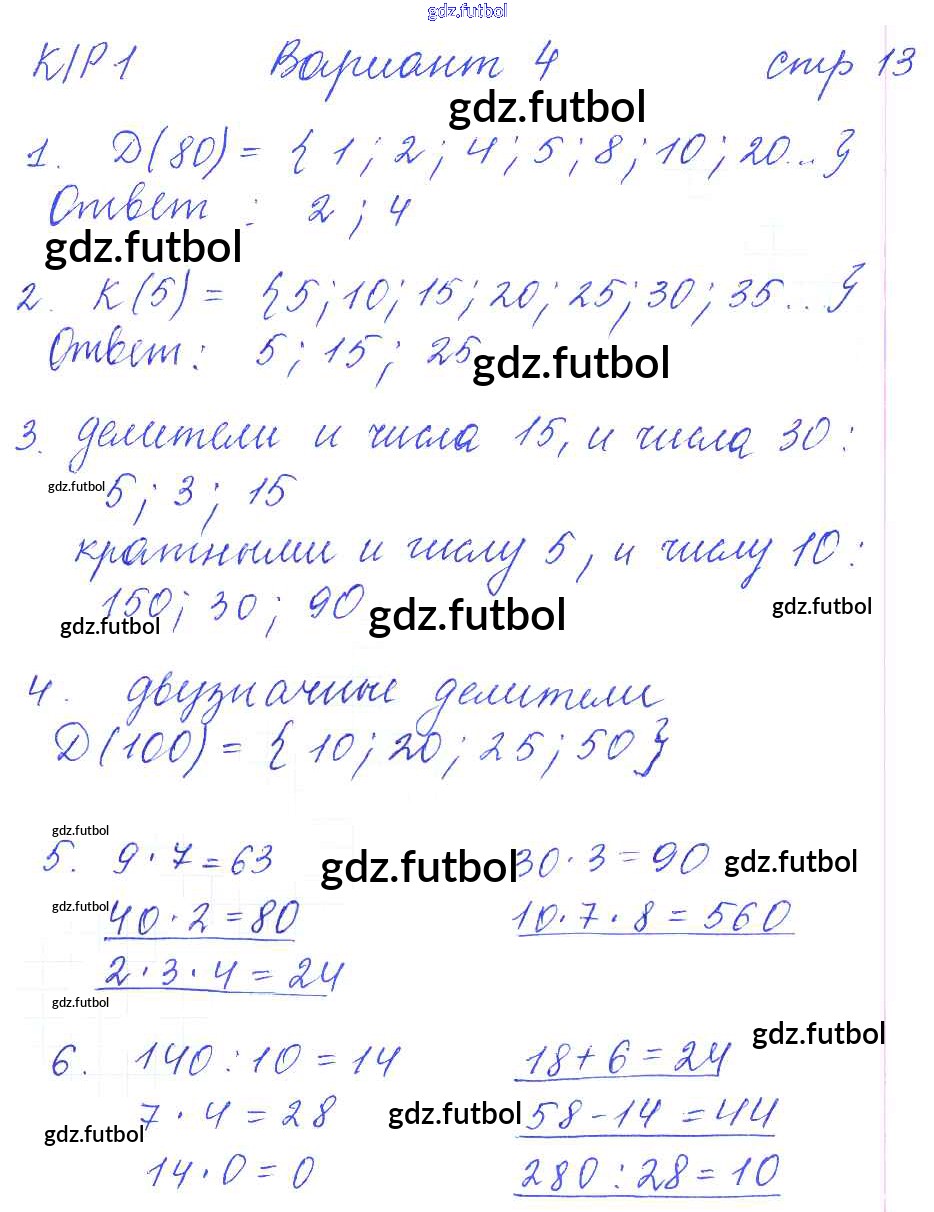 gdz.futbol
К/Р 1 Вариант 4 стр 13
gdz.futbol
1. Д(80) = { 1 ; 2 ; 4 ; 5 ; 8 ; 10 ; 20... }
Ответ : 2 ; 4
gdz.futbol
2. К(5) = {5 ; 10 ; 15 ; 20 ; 25 ; 30 ; 35 ... }
Ответ : 5 ; 15 ; 25
gdz.futbol
3. делители и числа 15, и числа 30 :
gdz.futbol
5 ; 3 ; 15
кратными и числу 5 , и числу 10 :
150 ; 30 ; 90
gdz.futbol gdz.futbol gdz.futbol
4. двузначные делители
Д(100) = { 10 ; 20 ; 25 ; 50 }
gdz.futbol
5. 9 · 7 = 63 gdz.futbol 30 · 3 = 90 gdz.futbol
gdz.futbol 40 · 2 = 80 10 · 7 · 8 = 560
2 · 3 · 4 = 24
gdz.futbol
gdz.futbol
6. 140 : 10 = 14 18 + 6 = 24
7 · 4 = 28 gdz.futbol 58 - 14 = 44
gdz.futbol
14 · 0 = 0 280 : 28 = 10